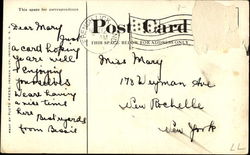 This space for correspondence
Post Card
THIS SPACE FOR ADDRESS ONLY.
Dear Mary
Just
a card hoping
you are well
& enjoying
yourselves
We are having
a nice time
here Best regards
from Bessie
Miss Mary
178 Weyman Ave
New Rochelle
New York
LL